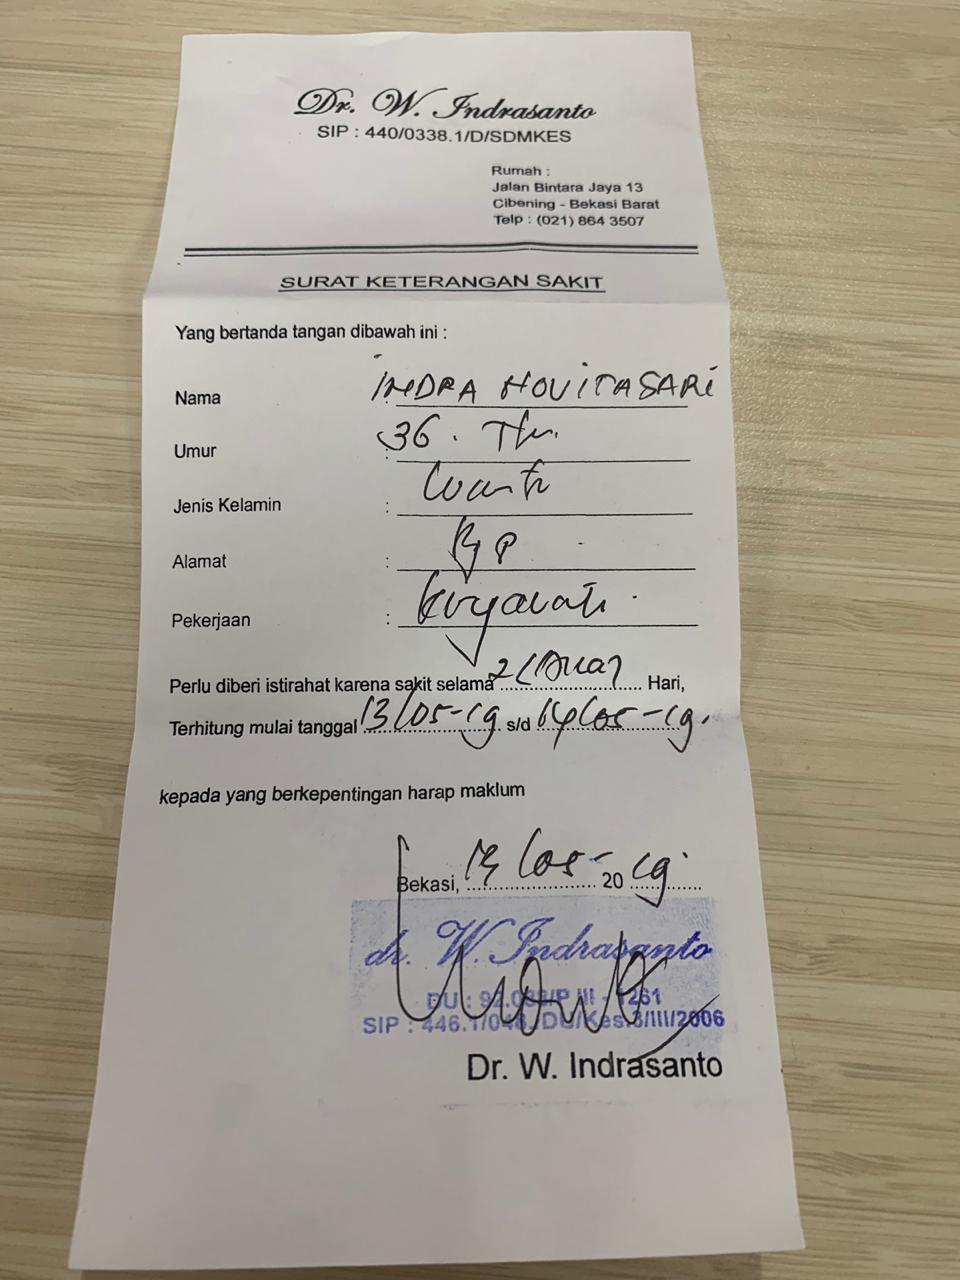 Dr. W. Indrasanto
SIP : 440/0338.1/D/SDMKES
Rumah :
Jalan Bintara Jaya 13
Cibening - Bekasi Barat
Telp : (021) 864 3507
SURAT KETERANGAN SAKIT
Yang bertanda tangan dibawah ini :
Nama : INDRA NOVITASARI
Umur : 36. Thn.
Jenis Kelamin : Wanita
Alamat :
Pekerjaan : Karyawati
Perlu diberi istirahat karena sakit selama 2 (Dua) Hari,
Terhitung mulai tanggal 13/05-19 s/d 14/05-19.
kepada yang berkepentingan harap maklum
Bekasi, 13/05- 20 19
dr. W. Indrasanto
DU : /P III - 1261
SIP : /III/2006
Dr. W. Indrasanto